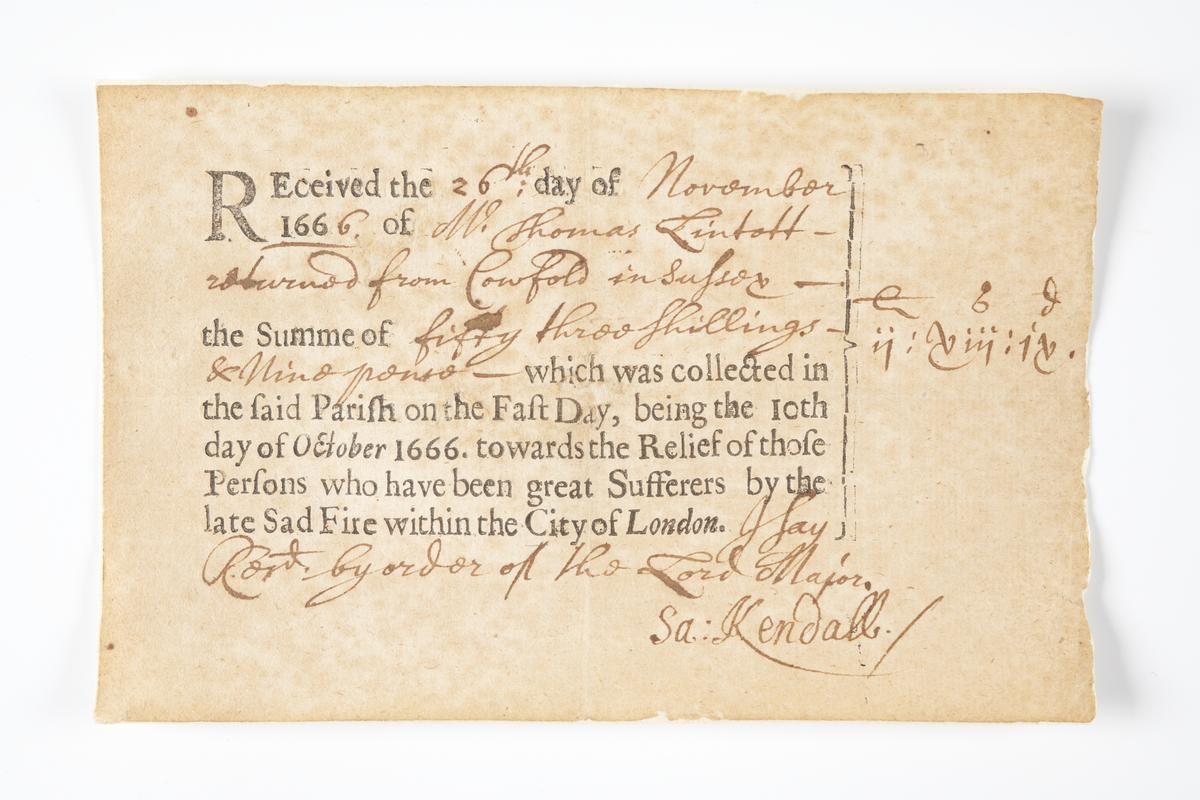 REceived the 26th: day of November
1666. of Mr Thomas Lintott –
returned from Cowfold in Sussex —
£ s d
the Summe of fifty three shillings –
ij : xiij : ix .
& Nine pence — which was collected in
the ſaid Pariſh on the Faſt Day, being the 10th
day of October 1666. towards the Relief of thoſe
Perſons who have been great Sufferers by the
late Sad Fire within the City of London. I say
Recd. by order of the Lord Major.
Sa: Kendall./